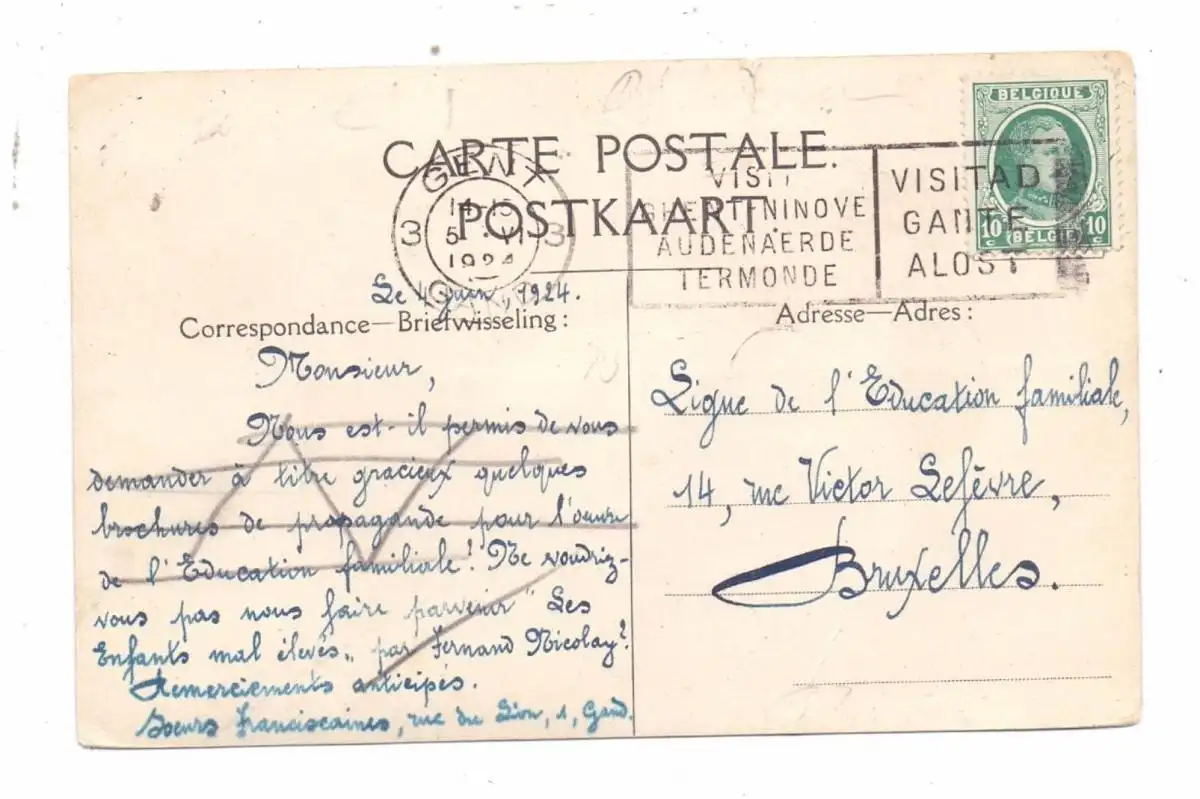 BELGIQUE
10 c BELGIE 10 c
CARTE POSTALE.
POSTKAART.
GENT
3 3
1924
VISIT
NINOVE
AUDENAERDE
TERMONDE
VISITAD
GANTE
ALOST
Le 4 juin, 1924.
Correspondance—Briefwisseling:
Monsieur,
Nous est-il permis de vous
demander à titre gracieux quelques
brochures de propagande pour l'oeuvre
de l'Education familiale! Ne voudriz-
vous pas nous faire parvenir "Les
Enfants mal élevés„ par Fernand Nicolay?
Remerciements anticipés.
Soeurs Franciscaines, rue du Lion, 1, Gand.
Adresse—Adres:
Ligue de l'Education familiale,
14, rue Victor Lefèvre,
Bruxelles.